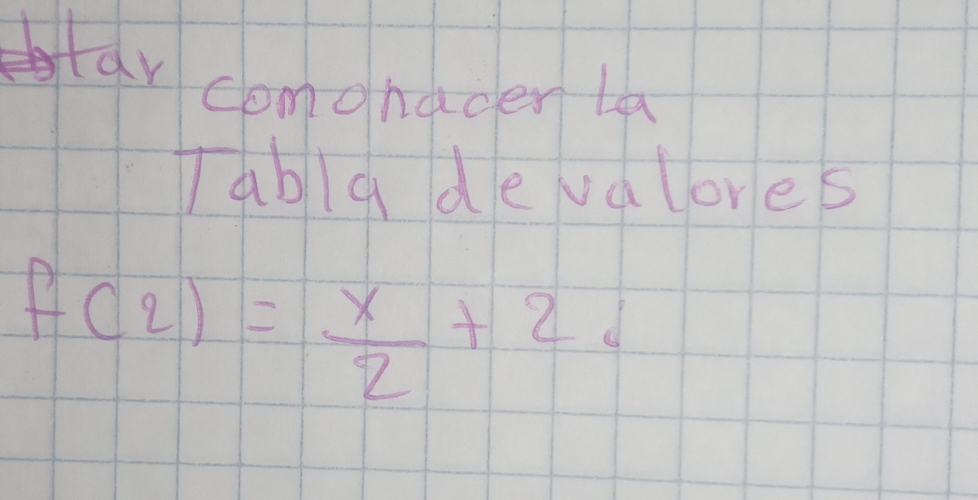 tar
como hacer la
Tabla de valores
f(2) = x/2 + 2.